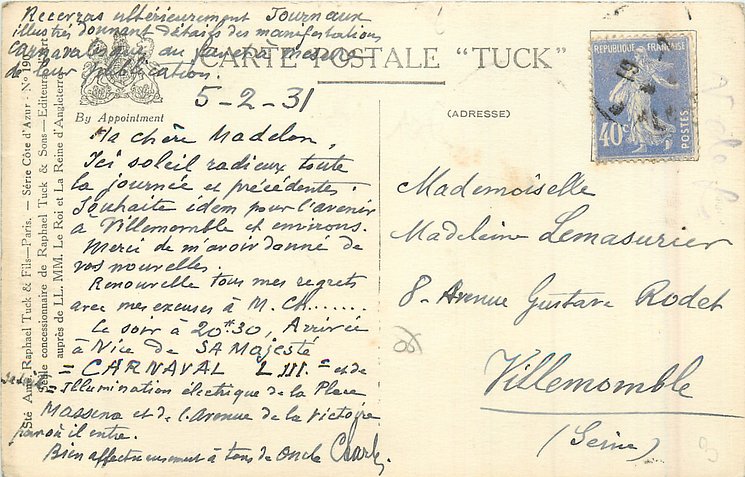 Recevras ultérieurement Journaux
illustrés donnant détails des manifestations
Carnavalesques au fur et à mesure
de leur publication.
CARTE POSTALE "TUCK"
5-2-31
By Appointment
(ADRESSE)
REPUBLIQUE FRANÇAISE
40c
POSTES
Ma chère Madelon,
Ici soleil radieux toute
la journée et précédentes.
Souhaite idem pour l'avenir
à Villemomble et environs.
Merci de m'avoir donné de
vos nouvelles.
Renouvelle tous mes regrets
avec mes excuses à M. Ch.......
Ce soir à 20H30, Arrivée
à Nice de SA Majesté
= CARNAVAL LIII = et de
= Illumination électrique de la Place
Massena et de l'Avenue de la Victoire
par où il entre.
Bien affectueusement à tous de Oncle Charly
Mademoiselle
Madeleine Lemasurier
8- Avenue Gustave Rodet
Villemomble
(Seine)
Sté Ame Raphael Tuck & Fils—Paris. — Série Côte d'Azur - No 190
Seule concessionnaire de Raphael Tuck & Sons—Editeurs d'Art
auprès de LL. MM. Le Roi et La Reine d'Angleterre